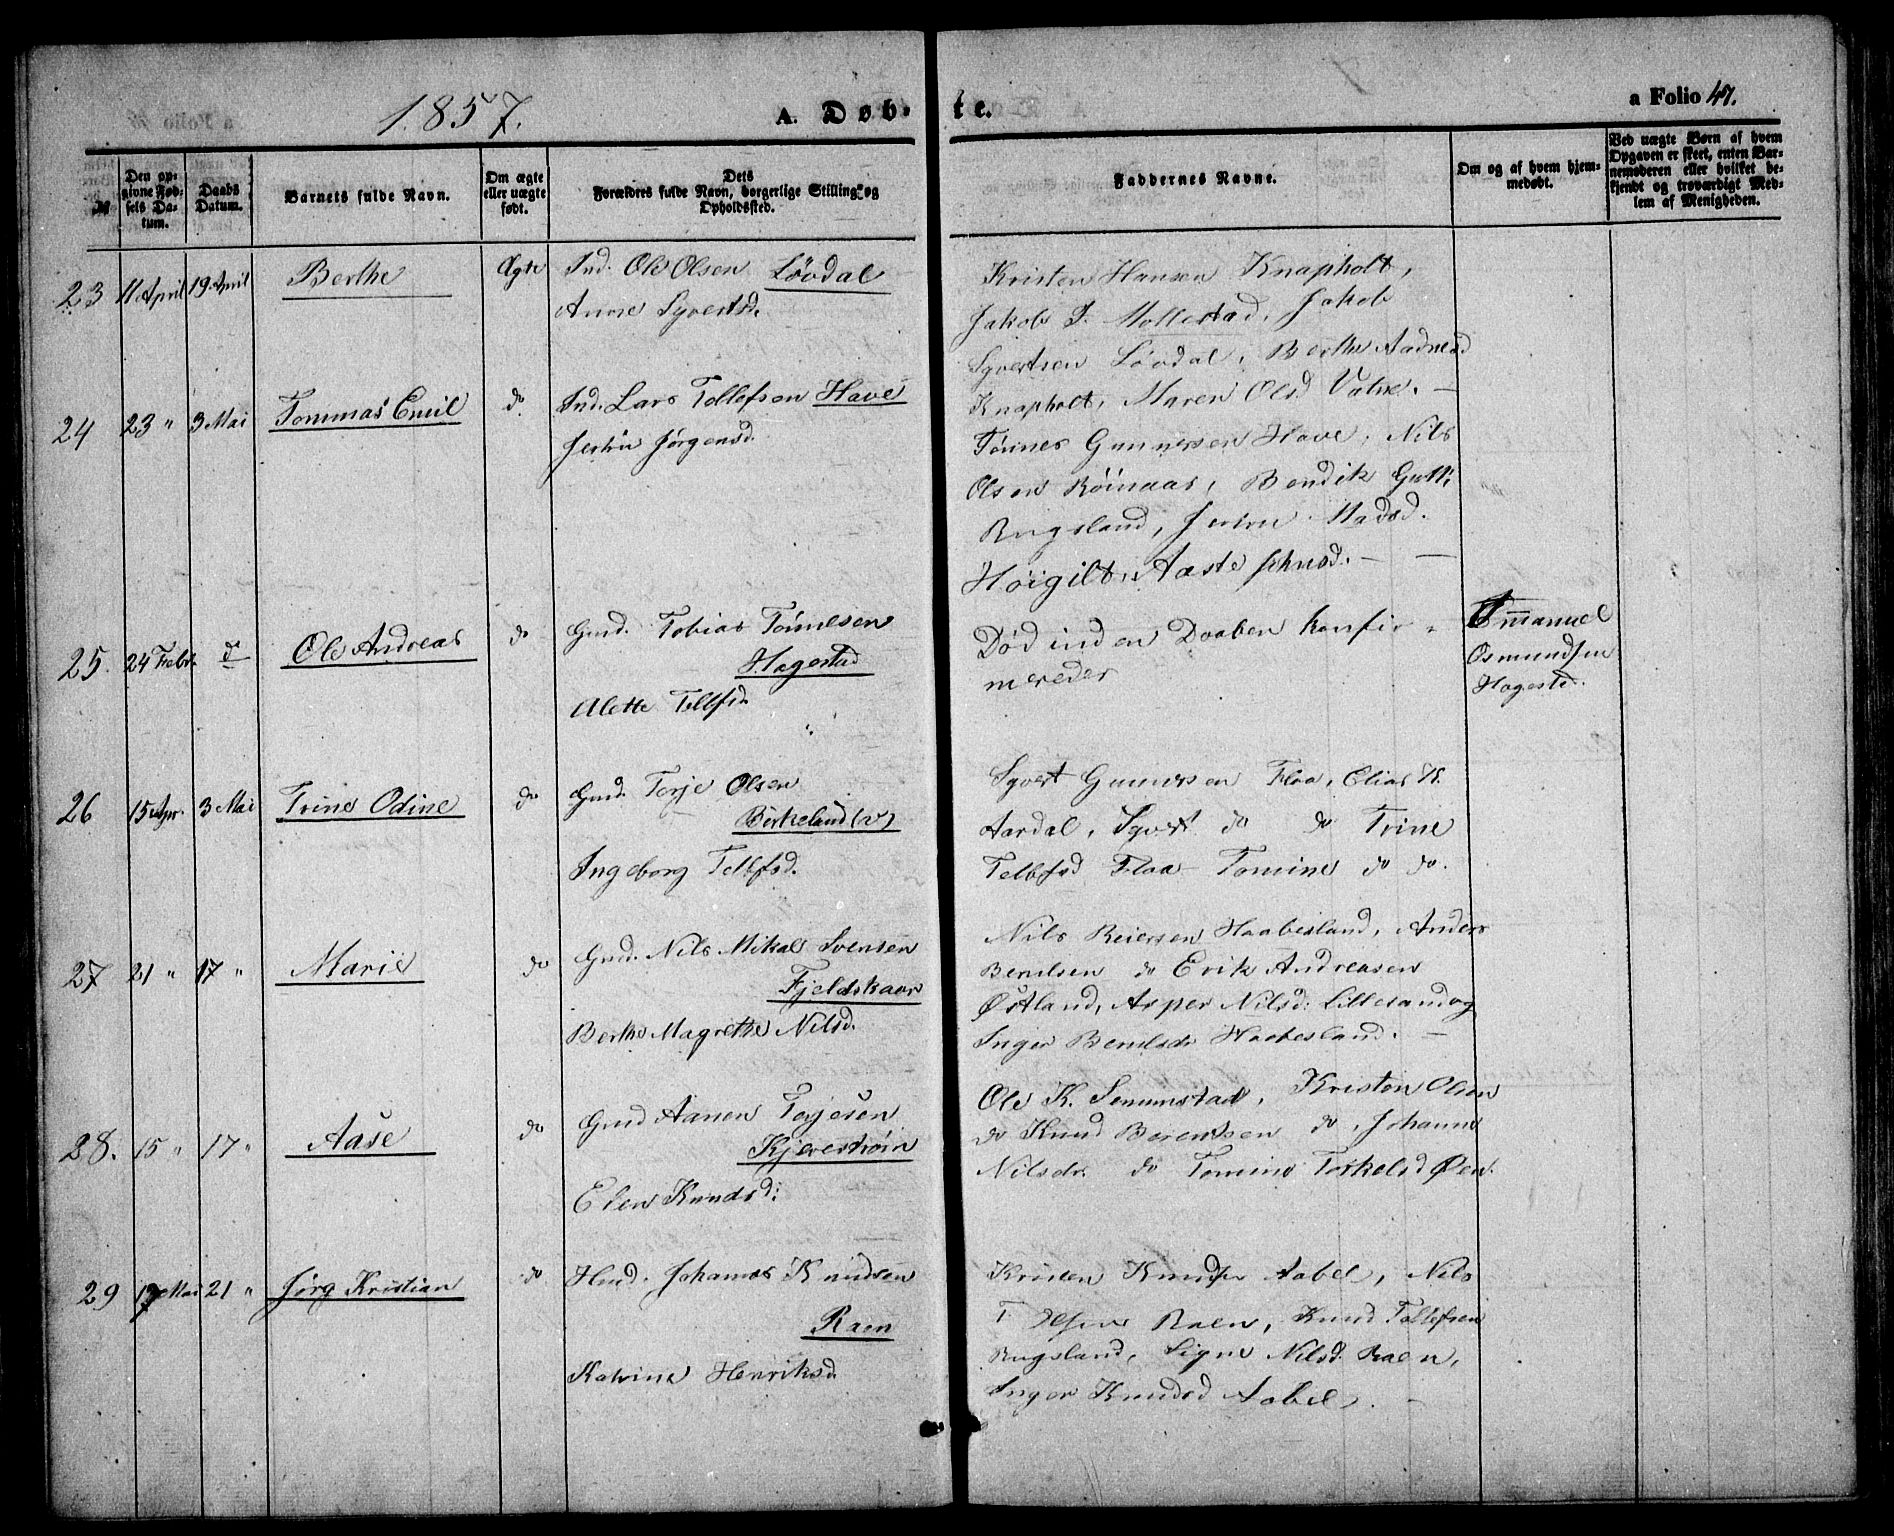 1857.
A. Døb-
te.
a Folio 47.
№
Den op-
givne Fød-
sels Da-
tum.
Daabs
Datum.
Barnets fulde Navn.
Om ægte
eller uægte
født.
Dets
Forældres fulde Navn, borgerlige Stilling og
Opholdssted.
Faddernes Navne.
Om og af hvem hjem-
medøbt.
Ved uægte Børn af hvem
Opgaven er skeet, enten Bar-
nemoderen eller hvilket be-
kjendt og troværdigt Med-
lem af Menigheden.
23 11 April 19 April Berthe Ægte Ind. Ole Olsen Løvdal
Anne Syverts d.
Kristen Hansen Knapholt,
Jakob J. Mollestad, Jakob
Syvertsen Løvdal, Berthe Aadnesd
Knapholt, Maren Olsd Vatne. —
24 23 " 3 Mai Tommas Emil do Ind. Lars Tellefsen Have
Jørgensd.
Tønnes Gunnersen Have, Nils
Olsen Røinaas, Bendik Gutt.
Rugsland, Madsd.
Høigilt, Aaste Johnsd. — —
25. 24 Febr. d Ole Andreas do Gmd. Tobias Tønnesen
Hagestad
Alette Tellfsd.
Død inden Daaben konfir-
mereder
Emmanuel
Osmundsen
Hagestd.
26 15 Apr. 3 Mai Trine Odine do Gmd. Terje Olsen
Birkeland (v)
Ingeborg Tellfsd.
Syvert Gunnersen Flaa, Elias
Aardal, Syvert do do Trine
Tellfsd Flaa Tomine do do.
27 21 " 17 " Marie do Gmd. Nils Mikal Svensen
Fjeldskaar
Berthe Magrethe Nilsd.
Nils Reiersen Haabesland, Anders
Berulsen do Erik Andreasen
Østland, Asper Nilsd: Lillesand og
Inger Berulsdr Haabesland. —
28. 15 " 17 " Aase do Gmd Aanen Terjesen
Kjerestrøm
Elen Knudsd:
Ole K. Senumstad, Kristen Olsen
do Knud Berentsen do, Johanne
Nilsdr. do Tomine Torkelsd Øen.
29 17 Mai 21 " Jørg Kristian do Hmd. Johannes Knudsen
Raen
Katrine Henriksd.
Kristen Knudsen Aabel, Nils
T Raen, Knud Tellefsen
Rugsland, Signe Nilsd. Raen,
Inger Knudsd Aabel. —